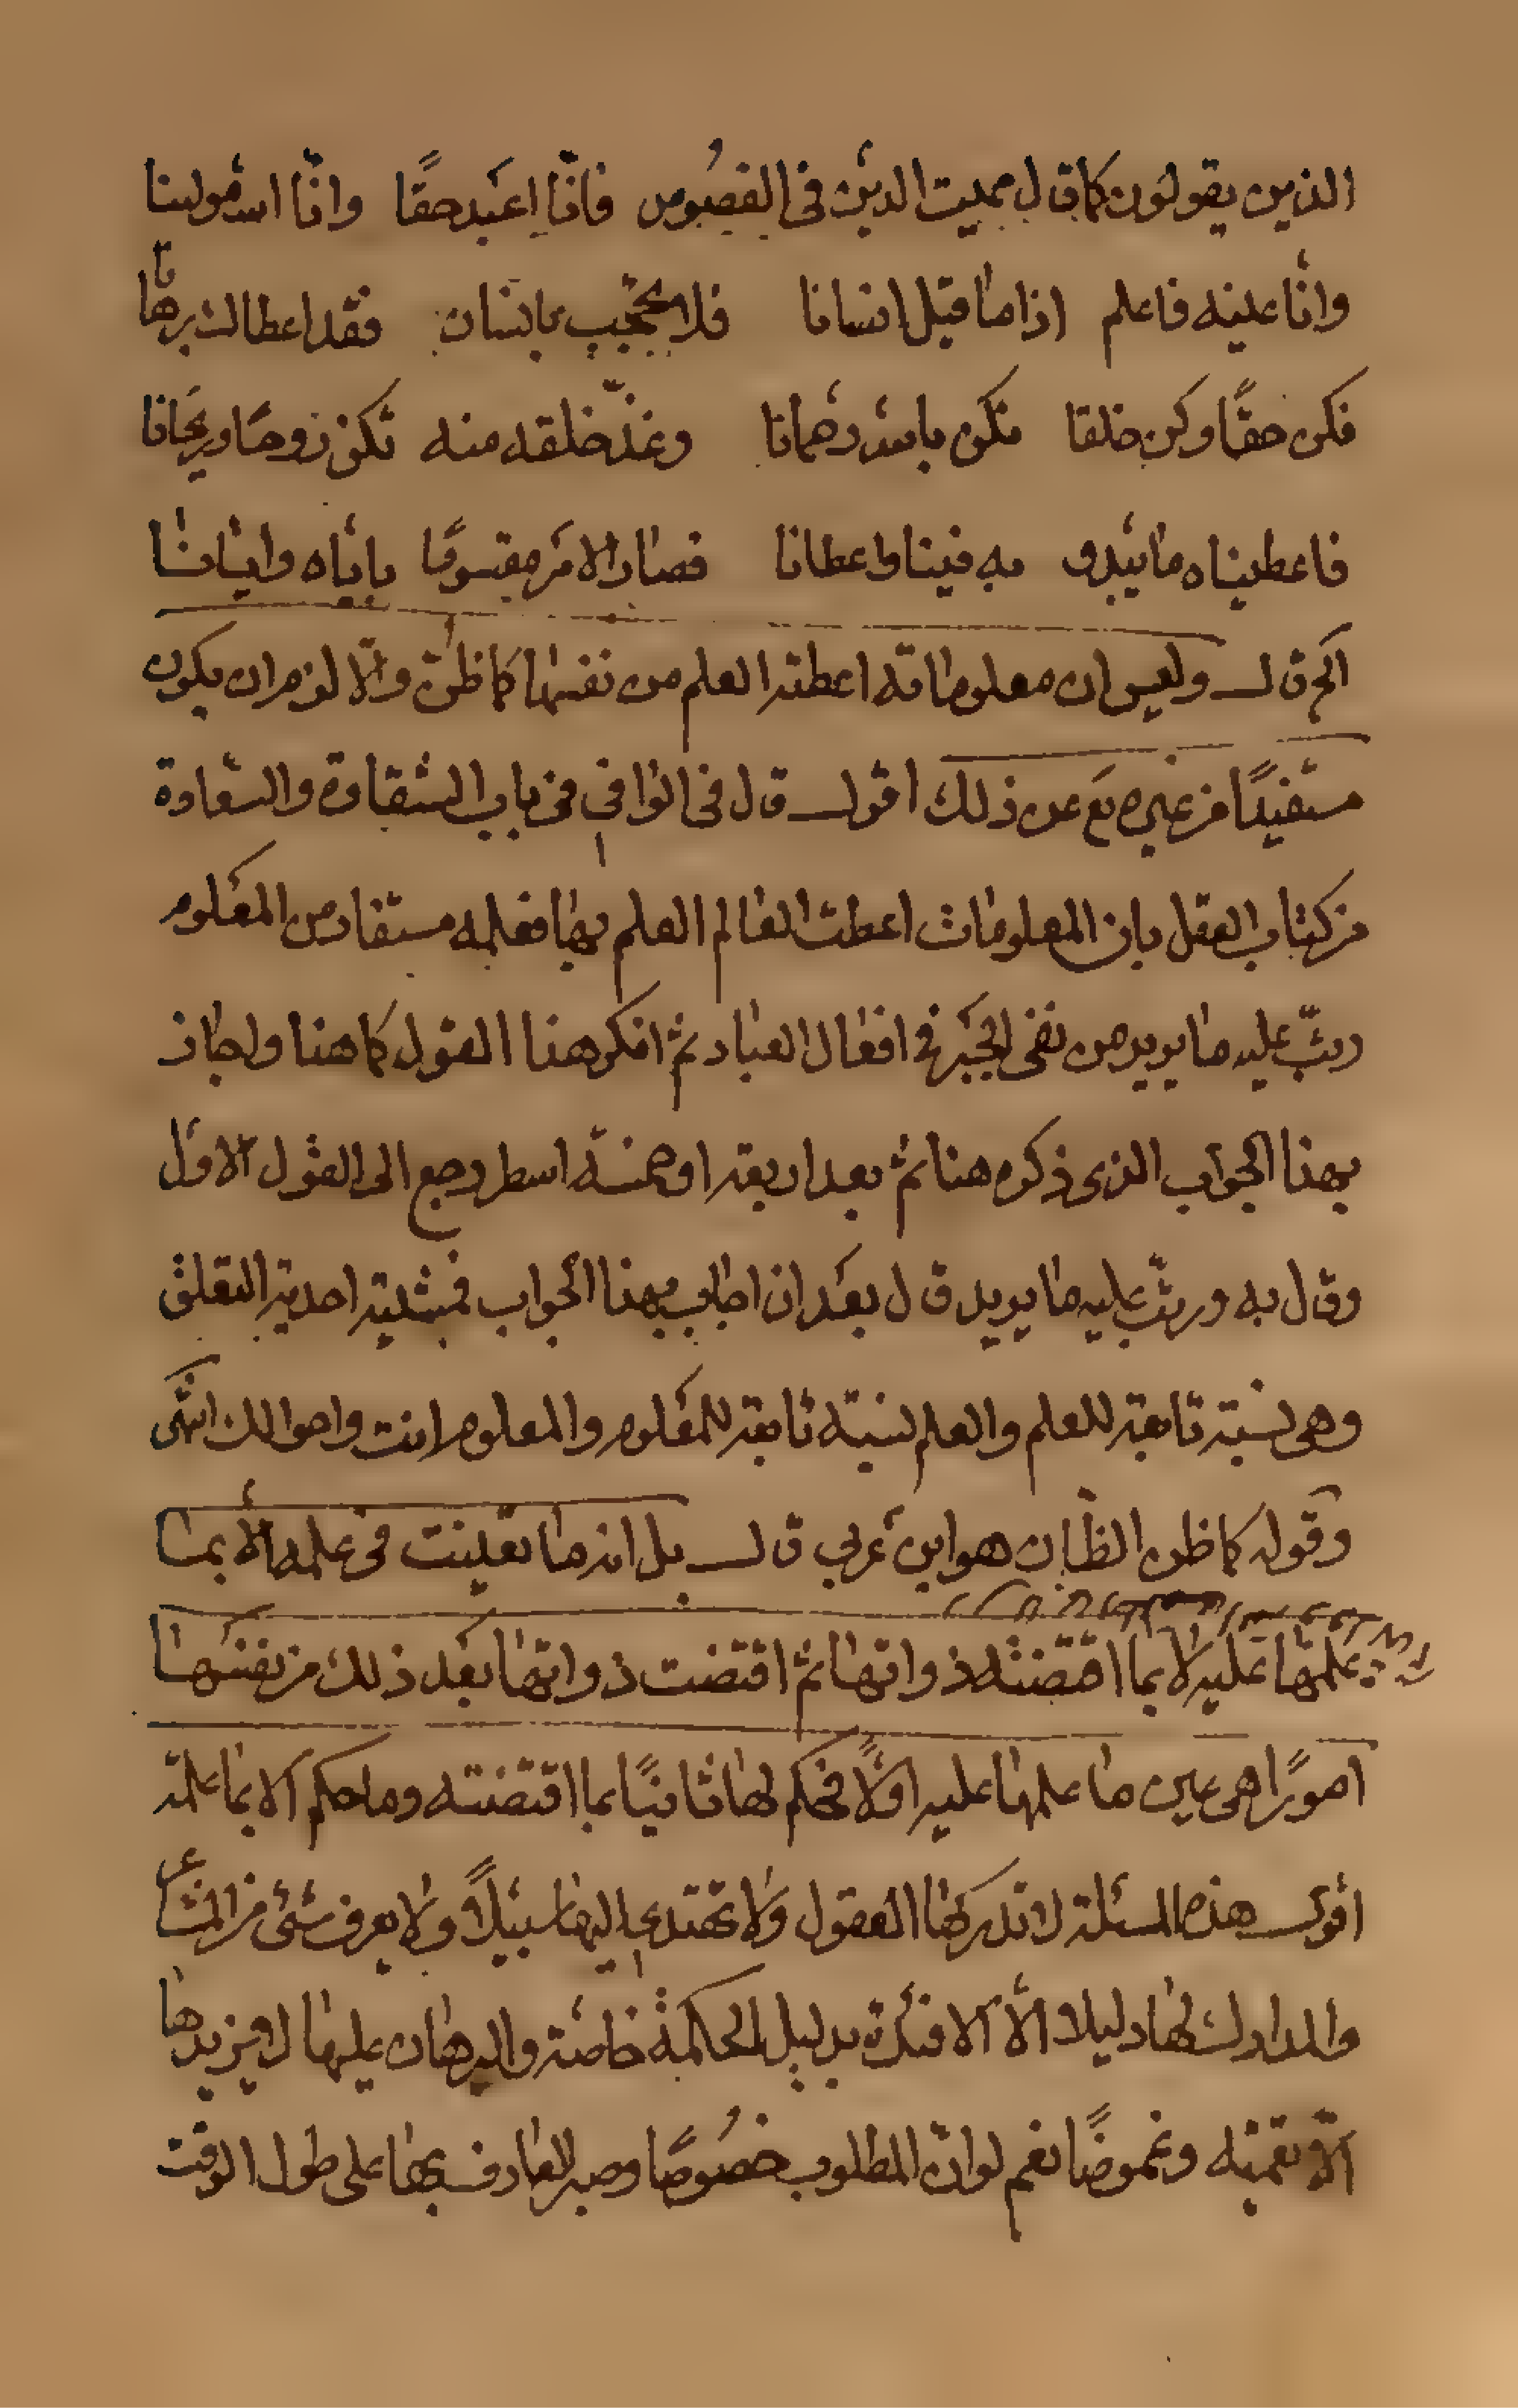 الذين يقولون كما قال مميت الدين في الفصوص فانّا اعبد حقّا وانّا الله مولينا
وانّا عينه فاعلم اذا ما قيل انسانا فلا تحجب بانسان فقد اعطاك برهانا
فكن حقّا وكن خلقا تكن بالله رحمانا وغذّ خلقه منه تكن روحًا وريحانا
فاعطيناه ما يبدو به فينا واعطانا فصار الامر مقسومًا باياه وايانا
الخ قال وليس ان معلوماته اعطته العلم من نفسها كما ظنّ والّا لزم ان يكون
مستفيدًا من غيره تع عن ذلك اقول قال في الوافي في باب الشقاوة والسعادة
من كتاب العقل بان المعلومات اعطت العالم العلم بها فعلمه مستفاد من المعلوم
ورتّب عليه ما يريد من نفي الجبر في افعال العباد ثم انكر هذا القول كما هنا واجاب
بهذا الجواب الذي ذكره هنا ثم بعد اربعة او خمسة اسطر رجع الى القول الاول
وقال به ورتّب عليه ما يريد قال بعد ان اجاب بهذا الجواب فمشيته احدية التعلق
وهي نسبة تابعة للعلم والعلم نسبة تابعة للمعلوم والمعلوم انت واحوالك انتهى
وقوله كما ظن الظان هو ابن عربي قال بل انه ما تعينت في علمه الّا بما
علمها عليه لا بما اقتضته ذواتها ثم اقتضت ذواتها بعد ذلك من نفسها
امورًا هي عين ما علمها عليه اوّلًا فحكم لها ثانيًا بما اقتضته وما حكم الا بما علمه
اقول هذه المسئلة لا تدركها العقول ولا تهتدي اليها سبيلًا ولا يعرف شئ من المشاعر
والمدارك لها دليلا الّا الافئدة بدليل الحكمة خاصّة والبرهان عليها لا يزيدها
الّا تعمية وغموضًا نعم لو ان المطلوب خصوصًا وصبر العارف بها على طول الوقت